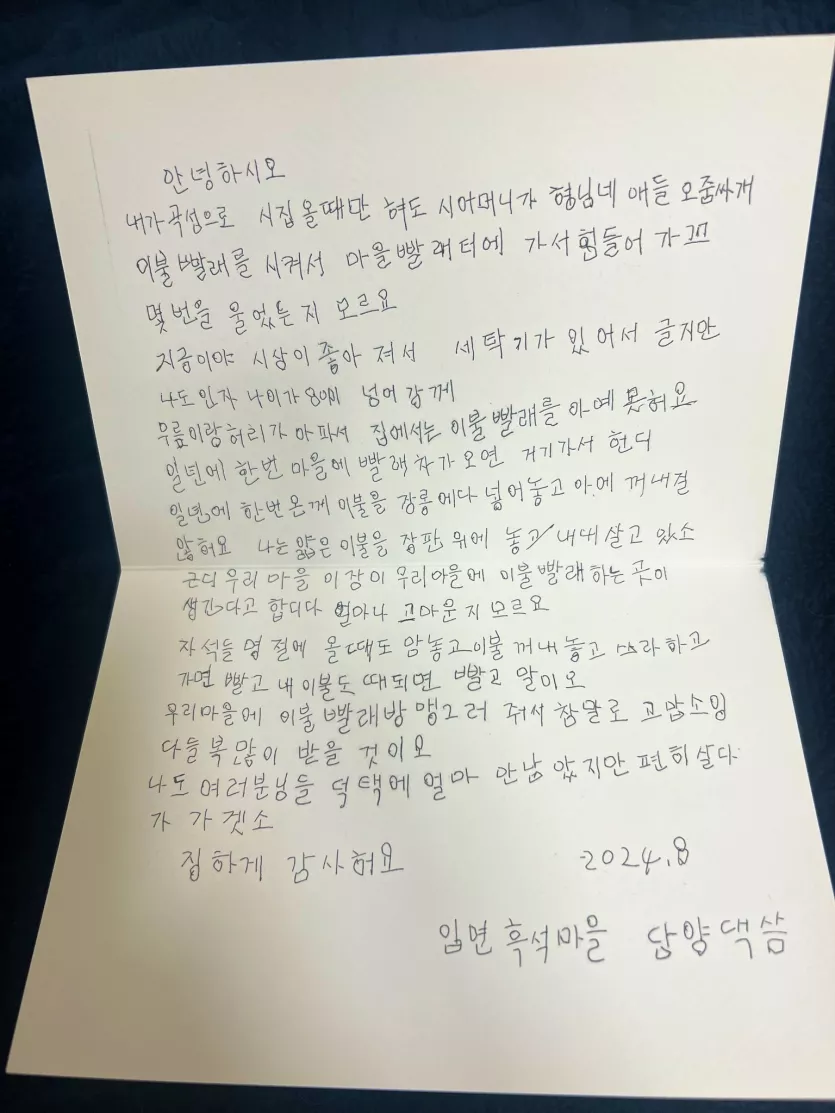 안녕하시오
내가 곡성으로 시집 올때만 혀도 시어머니가 형님네 애들 오줌싸개
이불 빨래를 시켜서 마을 빨래터에 가서 힘들어 가꼬
몇번을 울었는지 모르요
지금이야 시상이 좋아 져서 세탁기가 있어서 글지만
나도 인자 나이가 80이 넘어 강께
무릎이랑 허리가 아파서 집에서는 이불 빨래를 아예 못혀요
일년에 한번 마을에 빨래차가 오면 거기가서 헌디
일년에 한번 온께 이불을 장롱에다 넣어놓고 아에 꺼내질
않혀요 나는 얇은 이불을 장판 위에 놓고 내내 살고 있소
근디 우리 마을 이장이 우리마을에 이불빨래 하는 곳이
생긴다고 합디다 얼마나 고마운지 모르요
자석들 명절에 올때도 맘놓고 이불 꺼내놓고 쓰라하고
가면 빨고 내 이불도 때되면 빨고 말이오
우리마을에 이불 빨래방 맹그러 줘서 참말로 고맙소잉
다들 복 많이 받을 것이오
나도 여러분님들 덕택에 얼마 안남았지만 편히 살다
가 가겟소
집하게 감사혀요 2024.8
입면 흑석마을 담양댁 씀